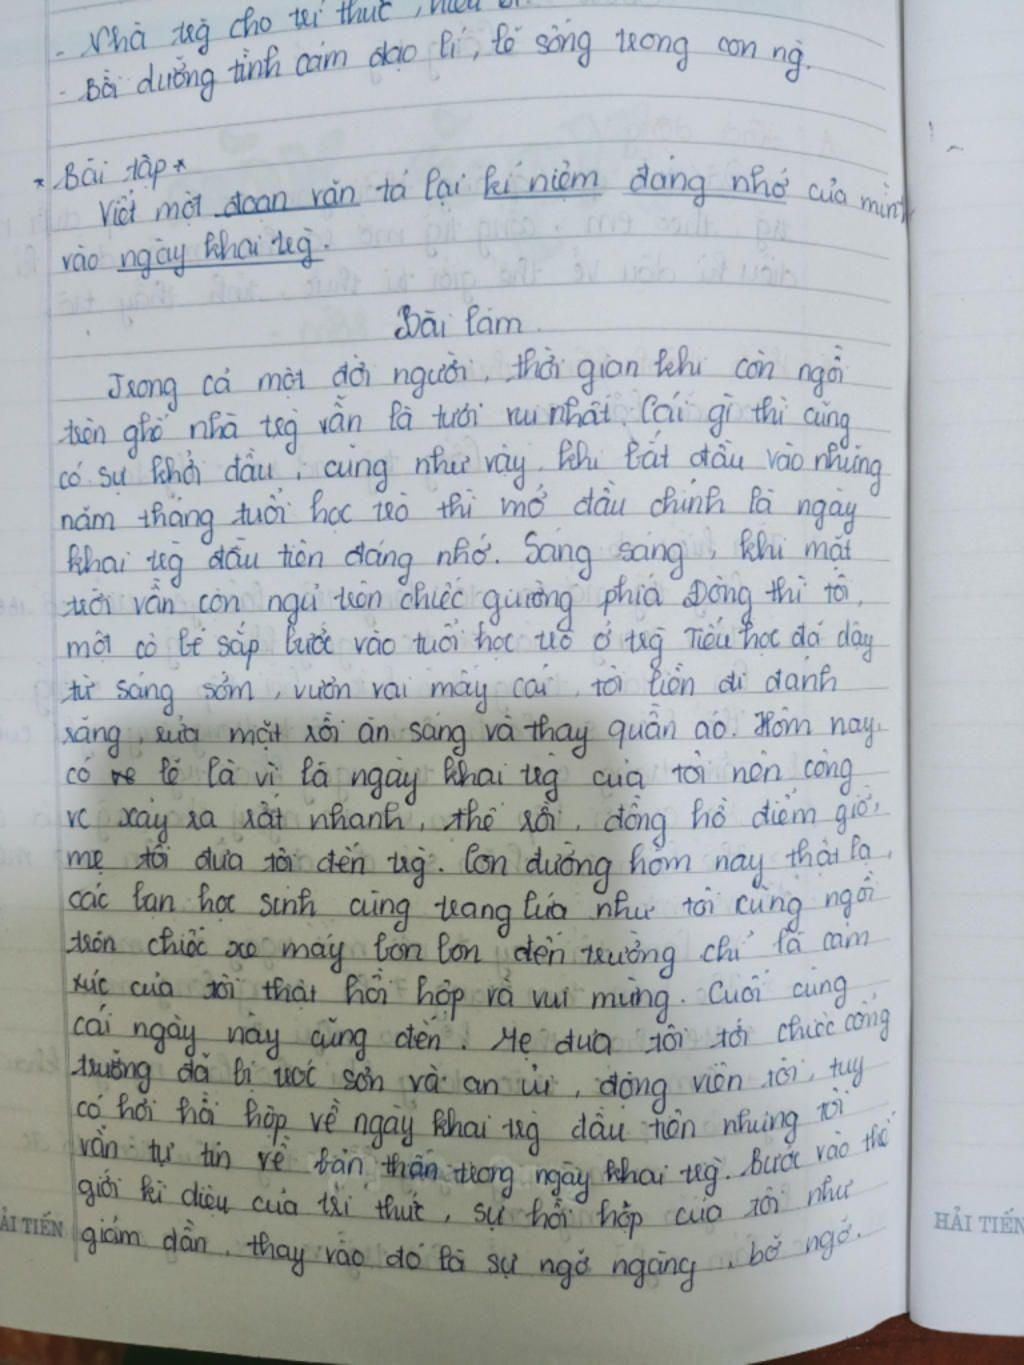 - Nhà trg cho tri thức, hiểu
- Bồi dưỡng tình cảm đạo lí, lẽ sống trong con ng.
* Bài tập *
Viết một đoạn văn tả lại kỉ niệm đáng nhớ của mình
vào ngày khai trg.
Bài làm
Trong cả một đời người, thời gian khi còn ngồi
trên ghế nhà trg vẫn là tươi vui nhất. Cái gì thì cũng
có sự khởi đầu, cũng như vậy, khi bắt đầu vào những
năm tháng tuổi học trò thì mở đầu chính là ngày
khai trg đầu tiên đáng nhớ. Sáng sáng, khi mặt
trời vẫn còn ngủ trên chiếc giường phía Đông thì tôi,
một cô bé sắp bước vào tuổi học trò ở trg Tiểu học đã dậy
từ sáng sớm, vươn vai mấy cái, tôi liền đi đánh
răng rửa mặt rồi ăn sáng và thay quần áo. Hôm nay,
có lẽ là vì là ngày khai trg của tôi nên công
vc xảy ra rất nhanh, thế rồi, đồng hồ điểm giờ,
mẹ tôi đưa tôi đến trg. Con đường hôm nay thật lạ,
các bạn học sinh cùng trang lứa như tôi cũng ngồi
trên chiếc xe máy bon bon đến trường chỉ là cảm
xúc của tôi thật hồi hộp và vui mừng. Cuối cùng
cái ngày này cũng đến. Mẹ đưa tôi tới chiếc cổng
trường đã bị sơn và an ủi, động viên tôi, tuy
có hơi hồi hộp về ngày khai trg đầu tiên nhưng tôi
vẫn tự tin về bản thân trong ngày khai trg. Bước vào thế
giới kì diệu của tri thức, sự hồi hộp của tôi như
giảm dần, thay vào đó là sự ngỡ ngàng, bỡ ngỡ.
ẢI TIẾN
HẢI TIẾN